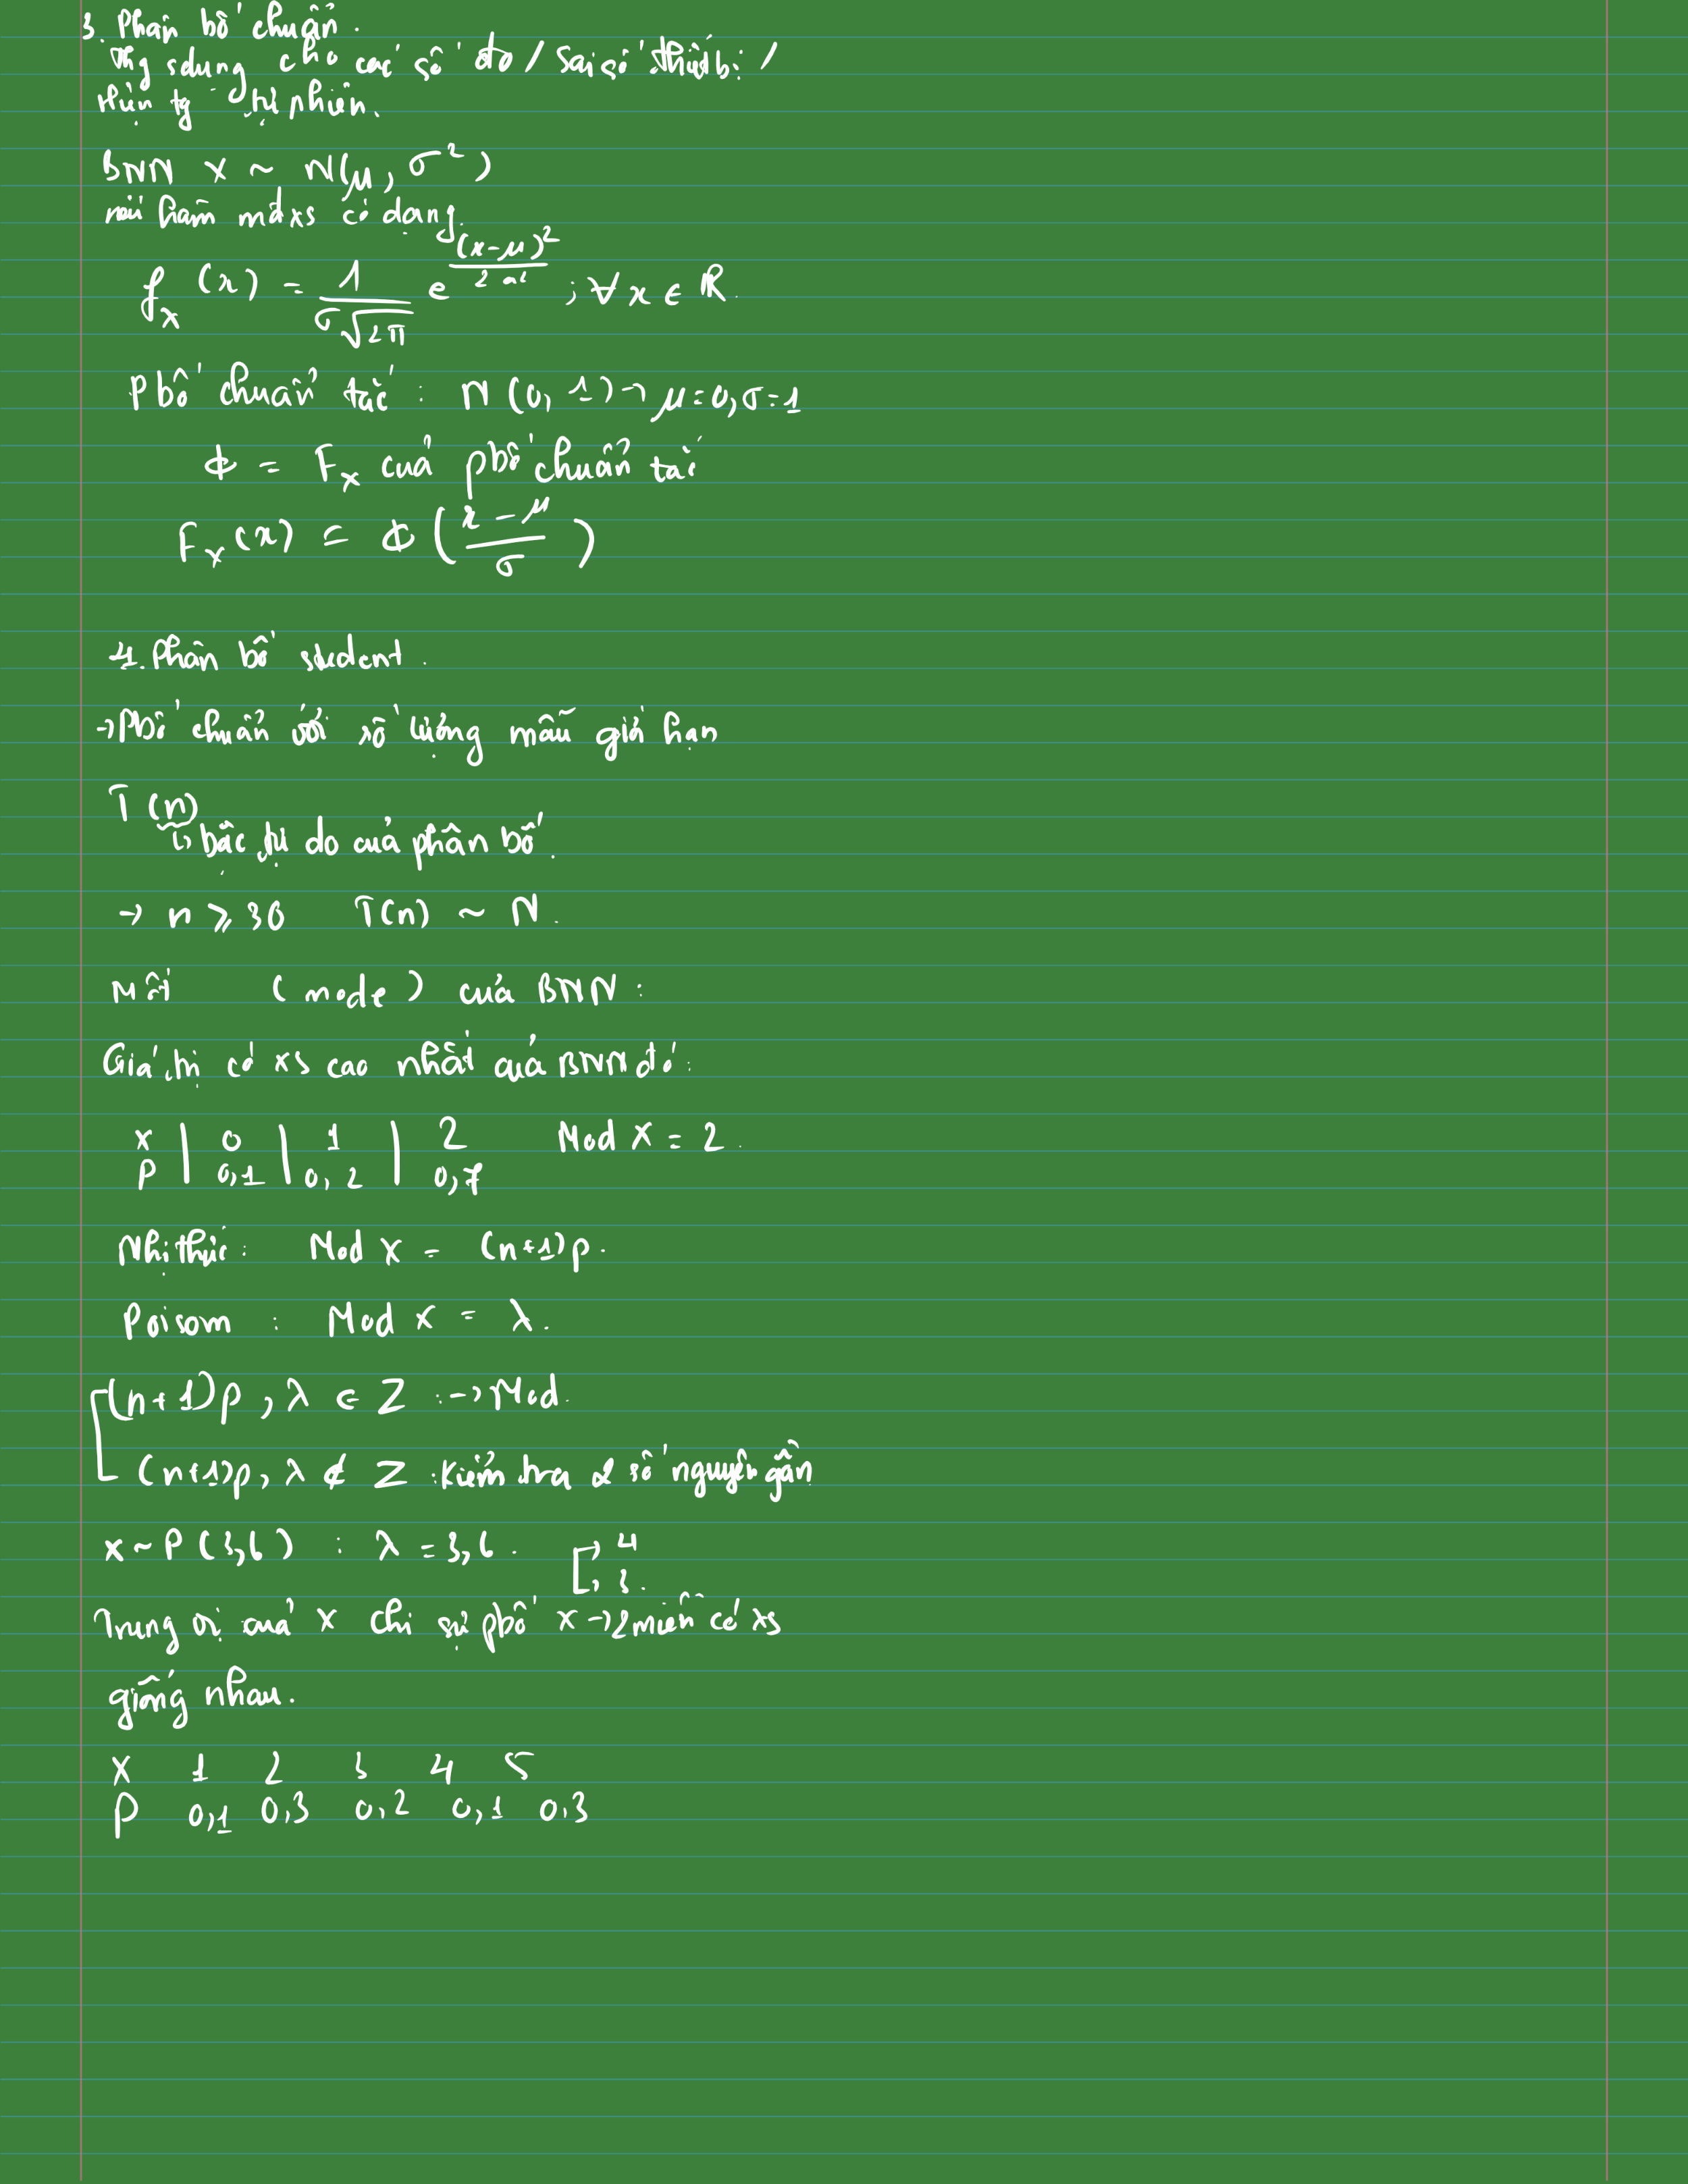 3. Phân bố chuẩn.
Ứng sdụng cho các số đo / Sai số thiết bị /
Hiện tg tự nhiên.
BNN X ~ N(μ, σ²)
nếu hàm mđxs có dạng.
f_X (x) = 1/(σ√(2π)) e^((x-μ)²/(2σ²)) ; ∀ x ∈ ℝ.
Pbố chuẩn tắc : N (0, 1) → μ = 0, σ = 1
Φ = F_X của pbố chuẩn tắc
F_X (x) = Φ ((x - μ)/σ)
4. Phân bố student.
→ Pbố chuẩn với số lượng mẫu giới hạn
T (n)
↳ bậc tự do của phân bố.
→ n ≥ 30 T(n) ~ N.
(mode) của BNN :
Giá trị có xs cao nhất của BNN đó :
X | 0 | 1 | 2 Mod X = 2.
P | 0,1 | 0,2 | 0,7
Nhị thức : Mod X = (n+1)p.
Poisom : Mod X = λ.
[ (n+1)p, λ ∈ Z : → Mod.
(n+1)p, λ ∉ Z : Kiểm tra 2 số nguyên gần
X ~ P (3,6) : λ = 3,6. [ 4
3.
Trung vị của X chi sự pbố X → 2 miền có xs
giống nhau.
X 1 2 3 4 5
P 0,1 0,3 0,2 0,1 0,3